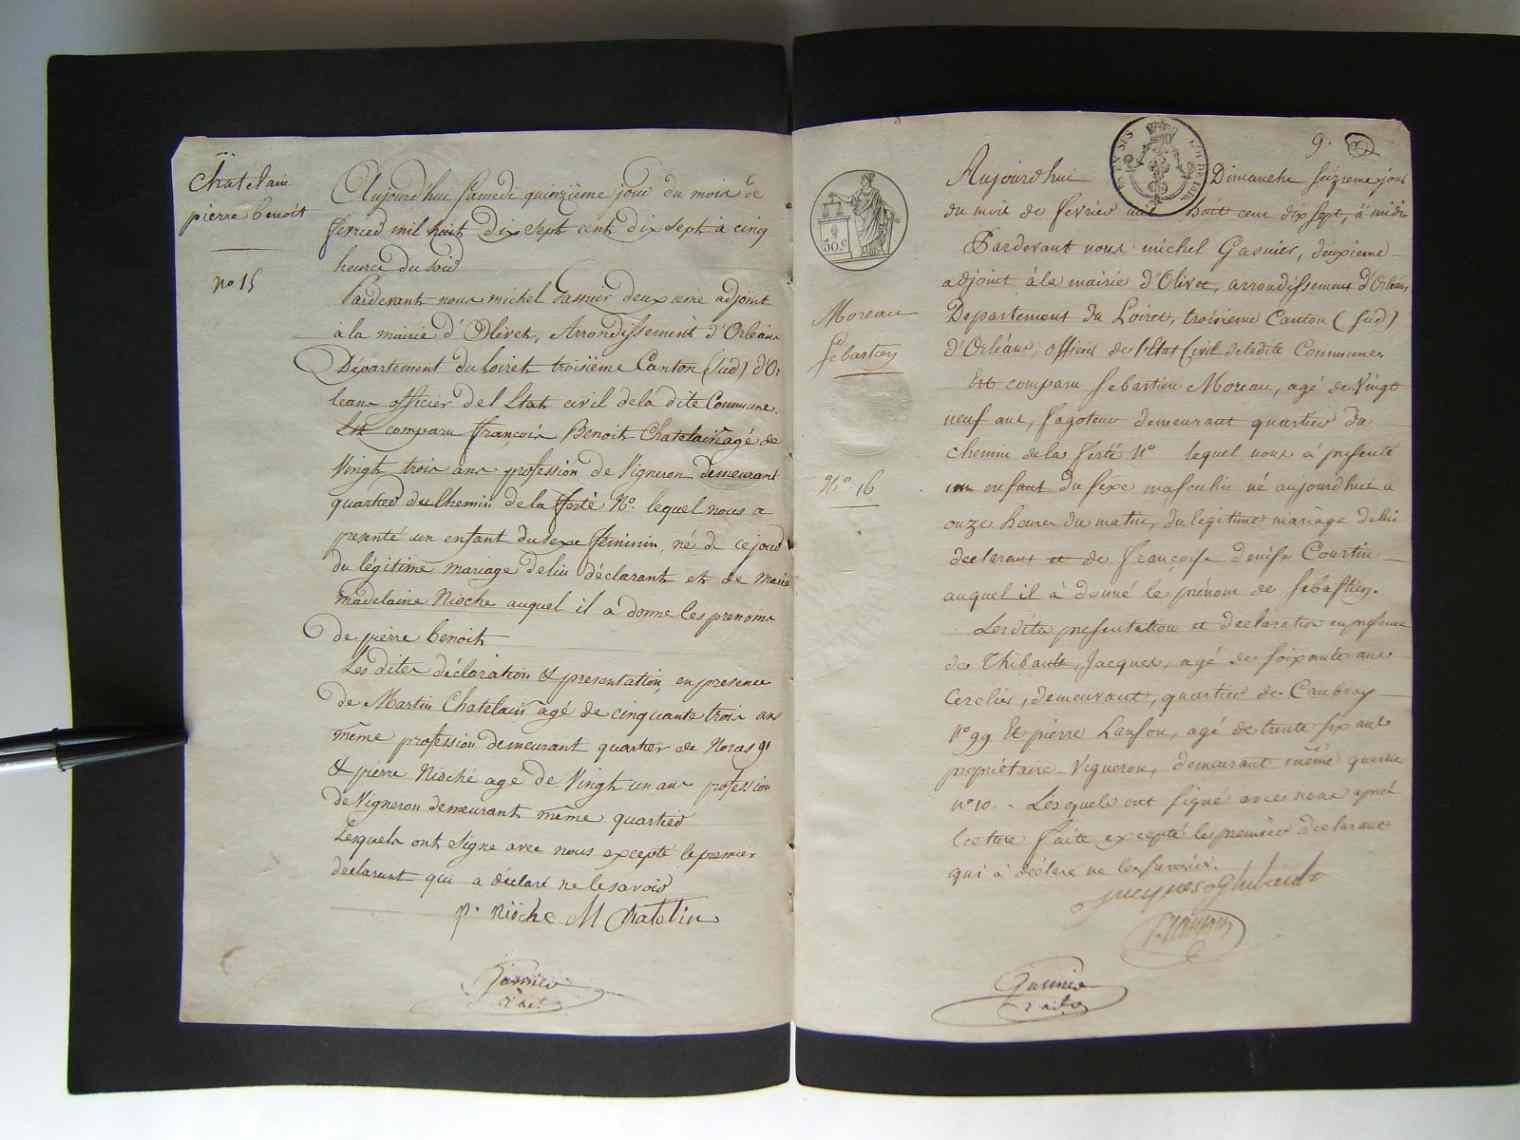 Chatelain
pierre benoit
no 15
Aujourd'hui Samedi quinzième jour du mois de
fevried mil huit Dix sept cent dix sept à cinq
heures du soir
Pardevant nous michel Gasnier deuxieme adjoint
à la mairie d'Olivet, Arrondissement d'Orléans
Département du Loiret troisième Canton (sud) d'Or
leans officier de l'Etat civil de la dite Commune.
Est comparu françois Benoit Chatelain agé de
Vingt trois ans profession de Vigneron demeurant
quartier du Chemin de la ferté No. lequel nous a
presenté un enfant du sexe feminin, né de ce jour
du légitime mariage de lui déclarant et de Marie
madelaine Nioche auquel il a donné les prenoms
de pierre benoit
Les dites déclaration & presentation, en presence
de Martin Chatelain agé de cinquante trois ans
même profession demeurant quartier de Noras 91
& pierre Nioché agé de Vingt un ans profession
de Vigneron demeurant même quartier
Lesquels ont signé avec nous excepté le premier
déclarant qui a déclaré ne le savoir
p. nioche M Chatelin
Gasnier
2e adt
9.
30 c
Moreau
Sebastien
No. 16
Aujourd'hui Dimanche seizieme jour
du mois de février mil huit cent dix sept, à midi
Pardevant nous michel Gasnier, deuxieme
adjoint à la mairie d'Olivet, arrondissement d'Orléans,
Departement du Loiret, troisieme Canton (sud)
d'Orléans, officier de l'Etat Civil de la dite Commune.
Est comparu Sebastien Moreau, agé de Vingt
neuf ans, fagoteur demeurant quartier du
chemin de la ferté No lequel nous à presenté
un enfant du sexe masculin né aujourd'hui à
onze heures du matin, du légitime mariage de lui
declarant et de françoise denise Courtin
auquel il à donné le prénom de Sebastien.
Lesdites presentation et declaration en presence
de Thibault, Jacques, agé de soixante ans
Cerclier, demeurant, quartier de Caubray
No 99 Et pierre Lanson, agé de trente six ans
propriétaire Vigneron, demeurant même quartier
no 10. Lesquels ont signé avec nous après
lecture faite excepté le premier déclarant
qui à déclaré ne le savoir.
jacques thibault
P. lanson
Gasnier
2 adt